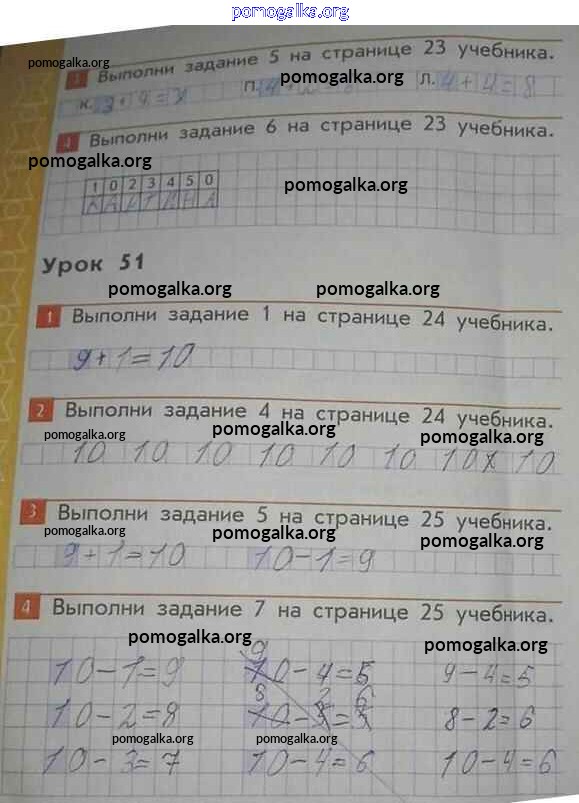 pomogalka.org
3 Выполни задание 5 на странице 23 учебника.
pomogalka.org
pomogalka.org
К. П. Л. 4+4=8
4 Выполни задание 6 на странице 23 учебника.
pomogalka.org
pomogalka.org
1 0 2 3 4 5 0
Урок 51
pomogalka.org pomogalka.org
1 Выполни задание 1 на странице 24 учебника.
9+1=10
2 Выполни задание 4 на странице 24 учебника.
pomogalka.org pomogalka.org pomogalka.org
10 10 10 10 10 10 10 10
3 Выполни задание 5 на странице 25 учебника.
pomogalka.org pomogalka.org pomogalka.org
9+1=10 10-1=9
4 Выполни задание 7 на странице 25 учебника.
pomogalka.org pomogalka.org
10-1=9 10-4=5 9-4=5
10-2=8 8-2=6
10-3=7 10-4=6 10-4=6
pomogalka.org pomogalka.org